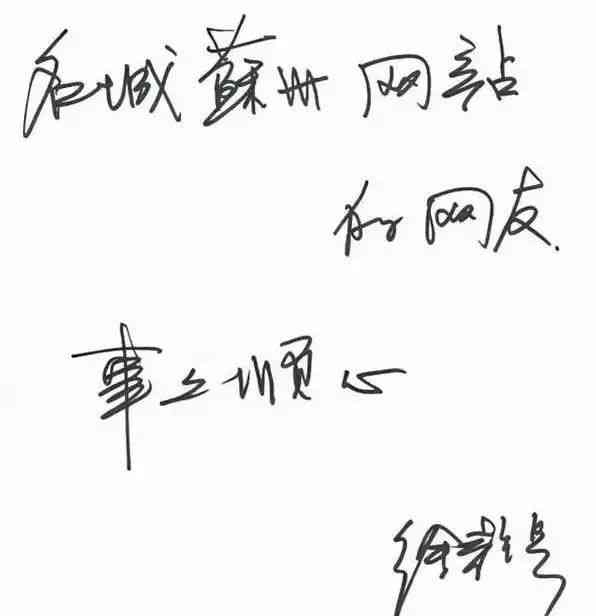 名城蘇州网站
的网友
事事顺心
徐